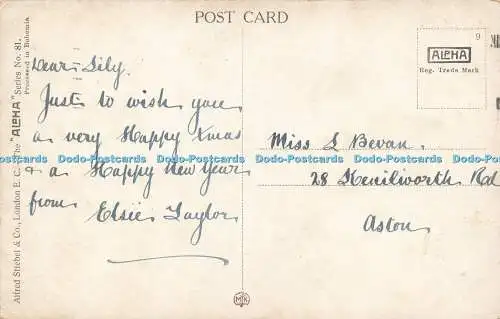 POST CARD
Alfred Stiebel & Co., London E.C. The "ALPHA" Series No. 81.
Processed in Bohemia.
Dear Lily.
Just to wish you
a very Happy Xmas
& a Happy New Year
from Elsie Taylor
9
ALPHA
Reg. Trade Mark
Miss L Bevan.
28 Kenilworth Rd
Aston
Dodo-Postcards Dodo-Postcards Dodo-Postcards Dodo-Postcards Dodo-Postcards